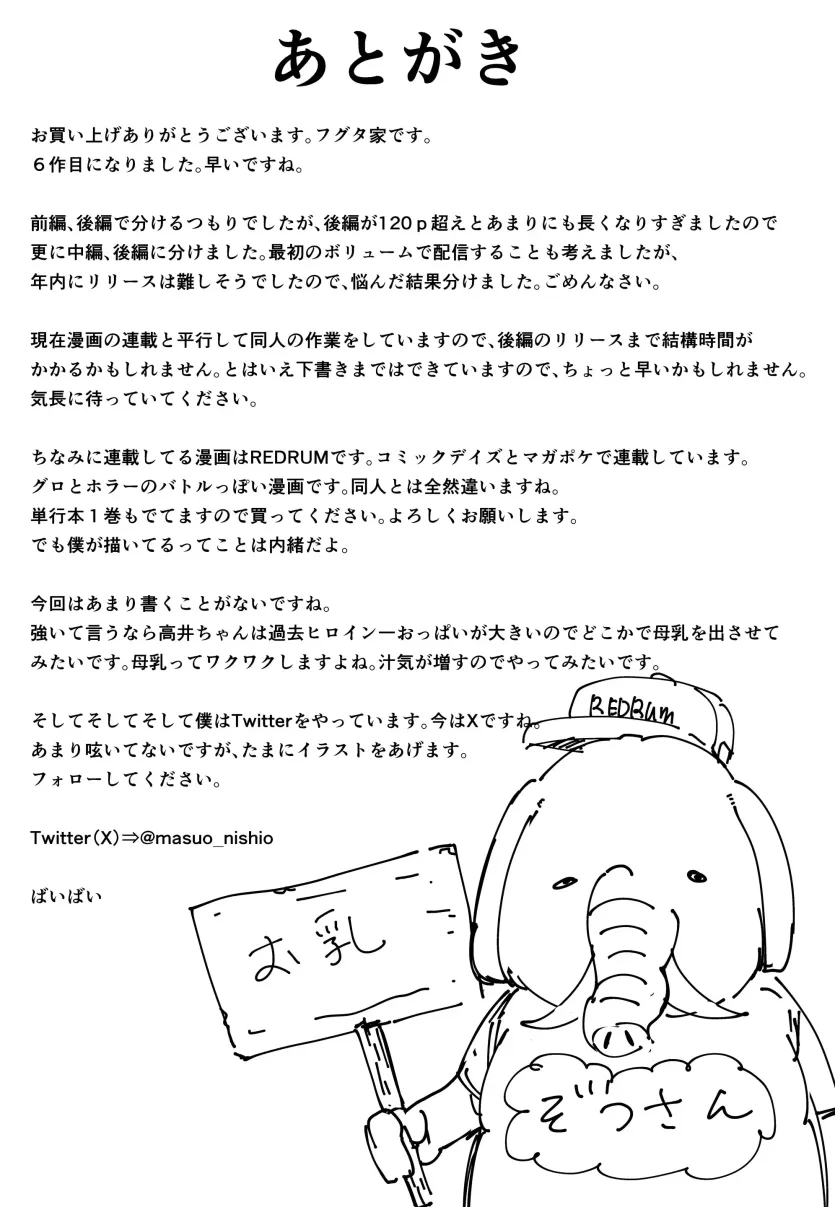 あとがき
お買い上げありがとうございます。フグタ家です。
６作目になりました。早いですね。
前編、後編で分けるつもりでしたが、後編が120ｐ超えとあまりにも長くなりすぎましたので
更に中編、後編に分けました。最初のボリュームで配信することも考えましたが、
年内にリリースは難しそうでしたので、悩んだ結果分けました。ごめんなさい。
現在漫画の連載と平行して同人の作業をしていますので、後編のリリースまで結構時間が
かかるかもしれません。とはいえ下書きまではできていますので、ちょっと早いかもしれません。
気長に待っていてください。
ちなみに連載してる漫画はREDRUMです。コミックデイズとマガポケで連載しています。
グロとホラーのバトルっぽい漫画です。同人とは全然違いますね。
単行本１巻もでてますので買ってください。よろしくお願いします。
でも僕が描いてるってことは内緒だよ。
今回はあまり書くことがないですね。
強いて言うなら高井ちゃんは過去ヒロイン一おっぱいが大きいのでどこかで母乳を出させて
みたいです。母乳ってワクワクしますよね。汁気が増すのでやってみたいです。
そしてそしてそして僕はTwitterをやっています。今はXですね。
あまり呟いてないですが、たまにイラストをあげます。
フォローしてください。
Twitter（X）⇒@masuo_nishio
ばいばい
REDRUM
お乳
ぞうさん